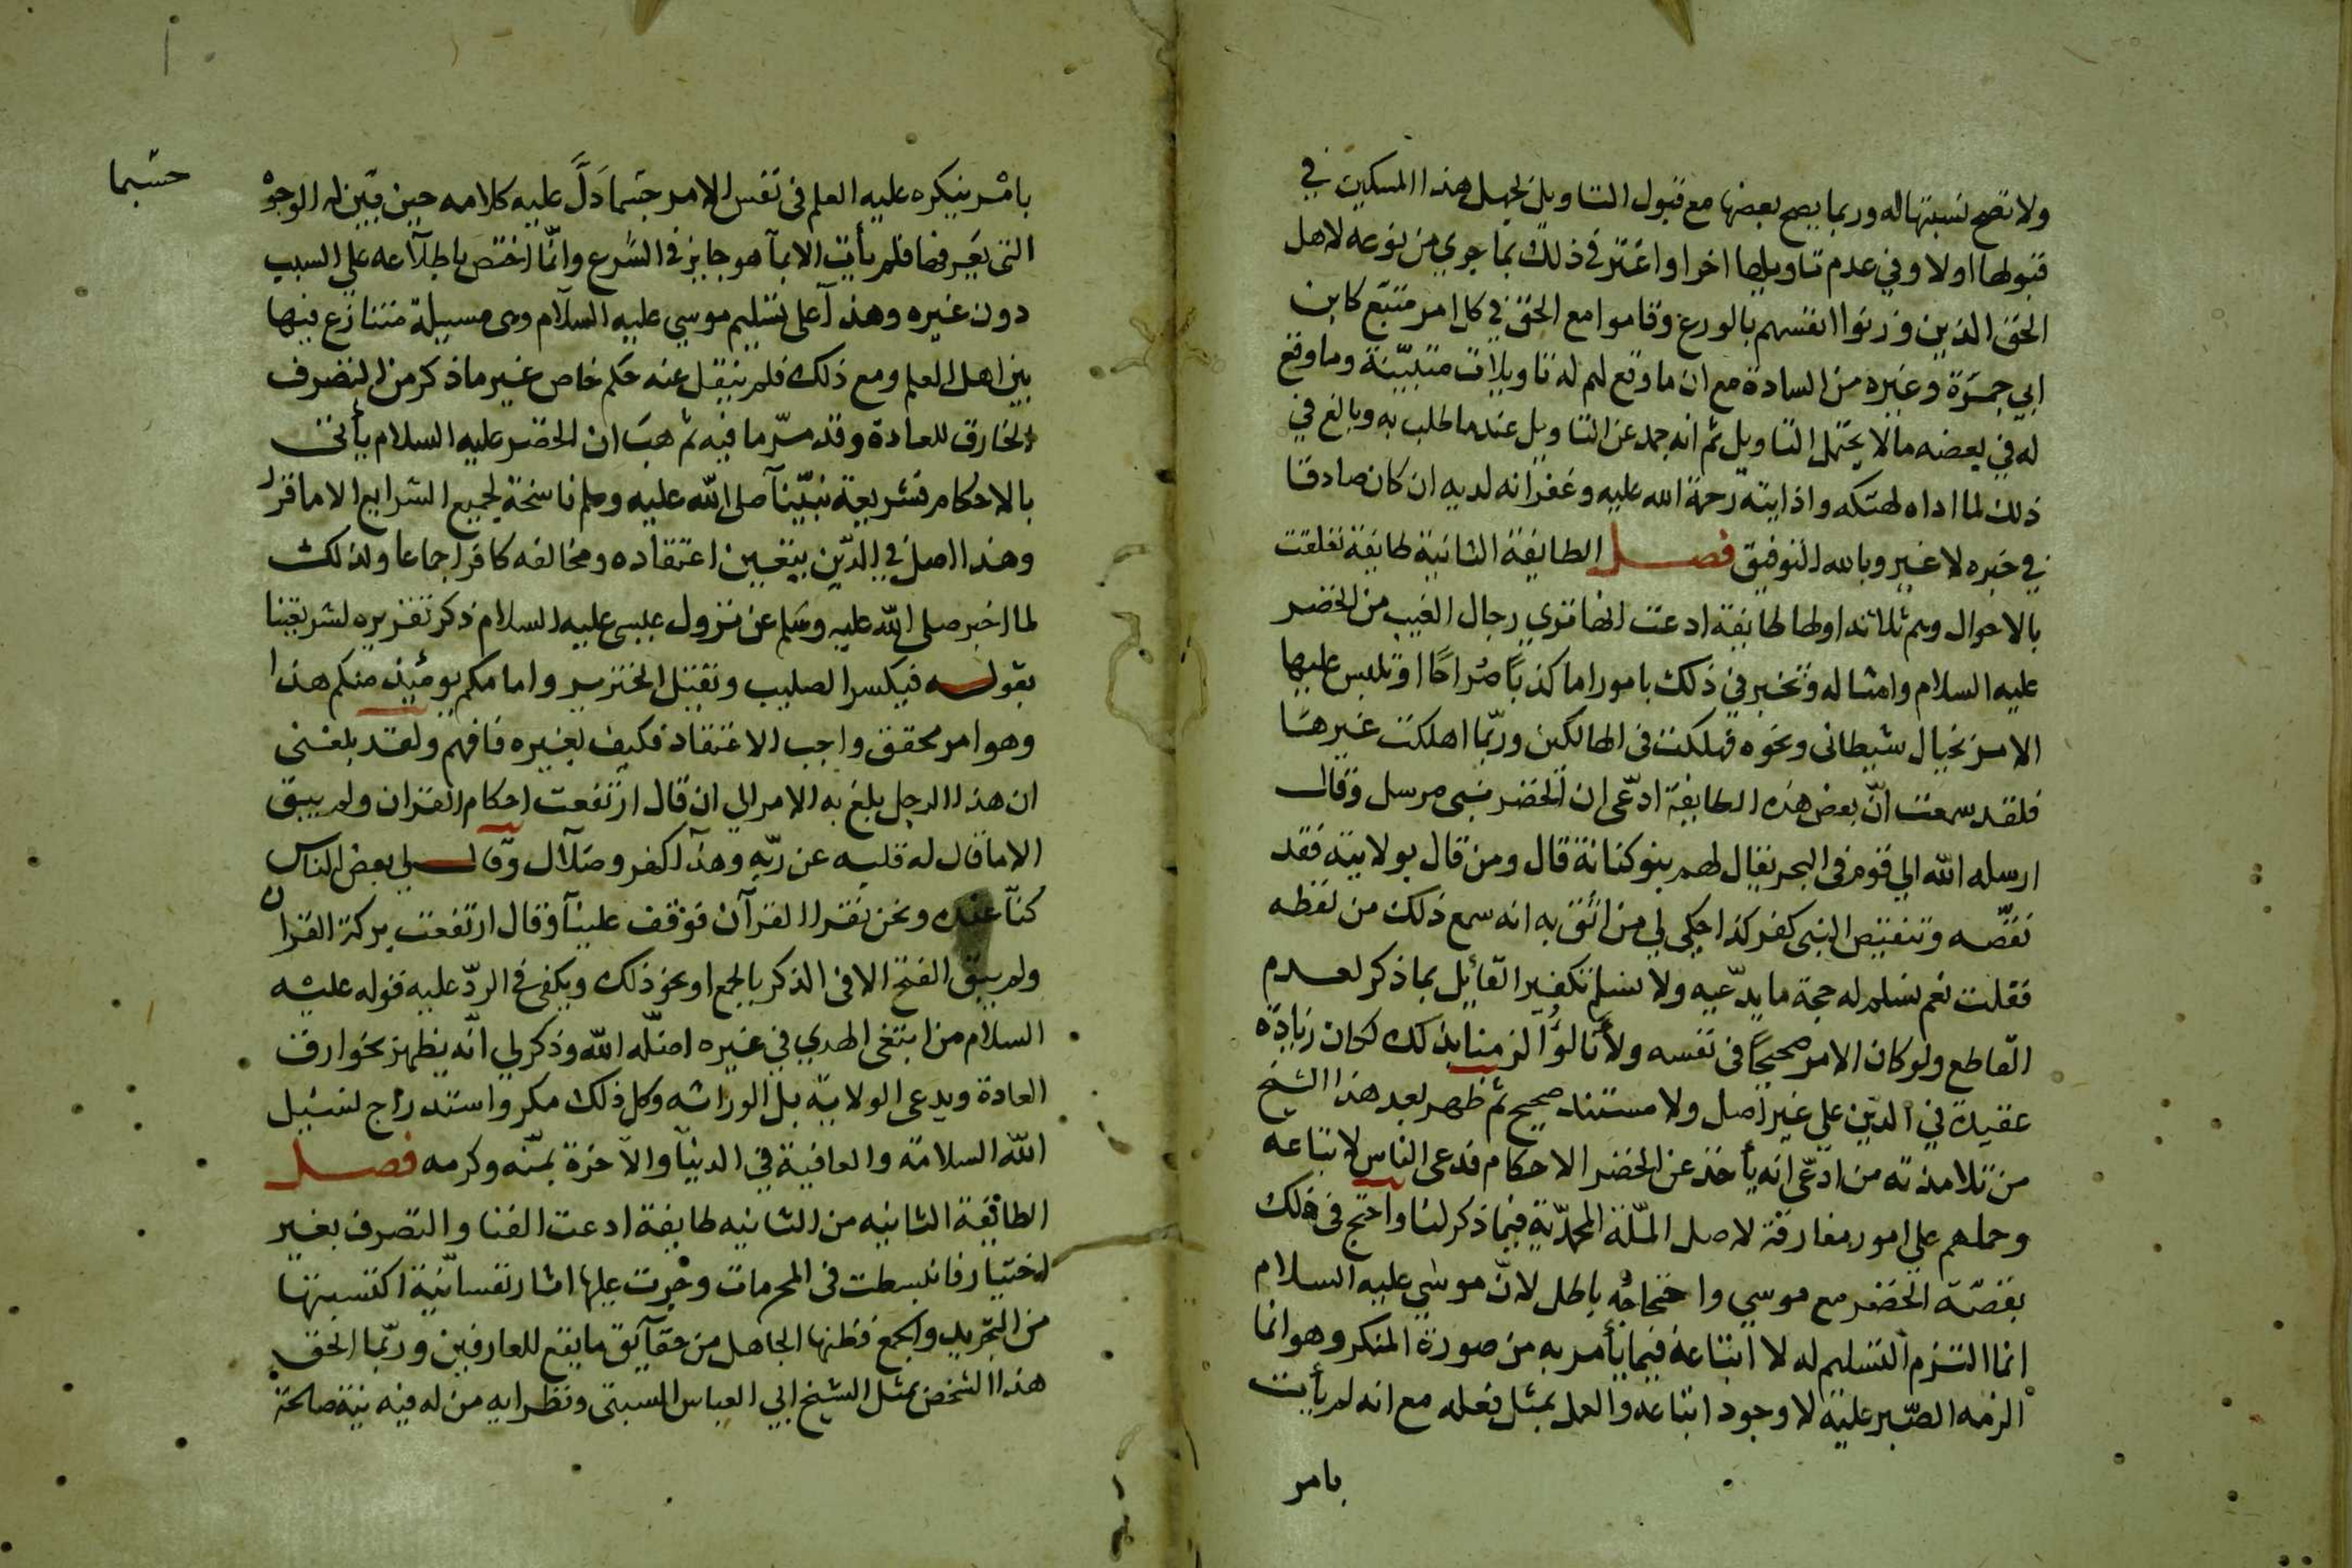 ولا تصح نسبتها له وربما يصح بعضها مع قبول التاويل لجهل هذا المسكين في
قبولها اولا وفي عدم تاويلها اخرا واغتر في ذلك بما جري من نوعه لاهل
الحق الذين وزنوا انفسهم بالورع وقاموا مع الحق في كل امر متبع كابن
ابي جمرة وغيره من السادة مع ان ما وقع لهم له تاويلات متبيّنة وما وقع
له في بعضه مالا يحتمل التاويل ثم انه جمد عن التاويل عندما طلب به وبالغ في
ذلك لما اداه لهتكه واذايته رحمة الله عليه وغفرانه لديه ان كان صادقا
في خبره لا غير وبالله التوفيق فصل الطايفة الثانية طايفة تعلقت
بالاحوال وهم ثلاثة اولها طايفة ادعت انها تري رجال الغيب من الخضر
عليه السلام وامثاله وتخبر في ذلك بامور اما كذبًا صُراحًا او تلبس عليها
الامر بخيال شيطانى ونحوه فهلكت فى الهالكين وربّما اهلكت غيرها
فلقد سمعت انّ بعض هذه الطايفة ادعّى ان الخضر نبى مرسل وقال
ارسله الله الي قوم فى البحر يقال لهم بنو كنانة قال ومن قال بولايته فقد
نقصّه وتنقيص النبى كفر كذا حكي لي من اثق به انه سمع ذلك من لفظه
فقلت نعم نسلم له حجة ما يدّعيه ولا نسلم تكفير القائل بما ذكر لعدم
القاطع ولو كان الامر صحيحًا فى نفسه ولانا لو الزمنا بذلك لكان زيادة
عقيدة في الدين علي غير اصل ولا مستند صحيح ثم ظهر بعد هذا الشيخ
من تلامذته من ادعّى انه يأخذ عن الخضر الاحكام فدعى الناس لاتباعه
وحملهم علي امور مفارقة لاصل الملّة المحمّديّة فيما ذكر لنا واحتج فى ذلك
بقصّة الخضر مع موسي واحتجاجُه باطل لانّ موسي عليه السلام
انما التزم التسليم له لا اتباعه فيما يأمر به من صورة المنكر وهو انما
الزمه الصّبر عليه لا وجود اتباعه والعمل بمثل فعله مع انه لم يأت
بامر
بامر ينكره عليه العلم فى نفس الامر حسبما دَلَّ عليه كلامه حين بيّن له الوجوْ
حسبما
التى تصرفها فلم يأت الا بما هو جايز فى الشرع وانّما اختص باطلاعه علي السبب
دون غيره وهذا علي تسليم موسي عليه السلام وهى مسيلة متنازع فيها
بين اهل العلم ومع ذلك فلم ينقل عنه حكم خاص غير ما ذكر من التصرف
الخارق للعادة وقد مرّ ما فيه ثم هبَ ان الخضر عليه السلام يأتى
بالاحكام فشريعة نبيّنا صلى الله عليه وسلم ناسخة لجميع الشرايع الا ما قرر
وهذا اصل في الدّين يتعين اعتقاده ومخالفه كافر اجماعا ولذلك
لما اخبر صلى الله عليه وسَلم عن نزول عيسى عليه السلام ذكر تقريره لشريعتنا
بقوله فيكسر الصليب وتقتل الخنزير وامامكم يومئذ منكم هذا
وهو امر محقق واجب الاعتقاد فكيف بغيره فافهم ولقد بلغنى
ان هذا الرجل بلغ به الامر الي ان قال ارتفعت احكام القران ولم يبق
الا ما قال له قلبه عن ربّه وهذا كفر وضلال وقال لي بعض الناس
كنّا عنده ونحن نقرا القرآن فوقف علينا وقال ارتفعت بركة القران
ولم يبق الفتح الا فى الذكر بالجمع او نحو ذلك ويكفى فى الردّ عليه قوله عليه
السلام من ابتغى الهدي في غيره اضلّه الله وذكر لي انّه يظهر بخوارق
العادة ويدعى الولاية بل الوراثه وكل ذلك مكر واستدراج لنسئل
الله السلامة والعافية في الدنيا والآخرة بمنّه وكرمه فصل
الطائفة الثانيه من الثانيه طايفة ادعت الفنا والتصرف بغير
اختيار فانبسطت فى المحرمات وجرت عليها اثار نفسانيّة اكتسبتها
من التجريد والجمع فظنها الجاهل من حقآيق ما يقع للعارفين وربّما الحق
هذا الشخص بمثل الشيخ ابي العباس السبتى ونظرايه من له فيه نيّة صالحة